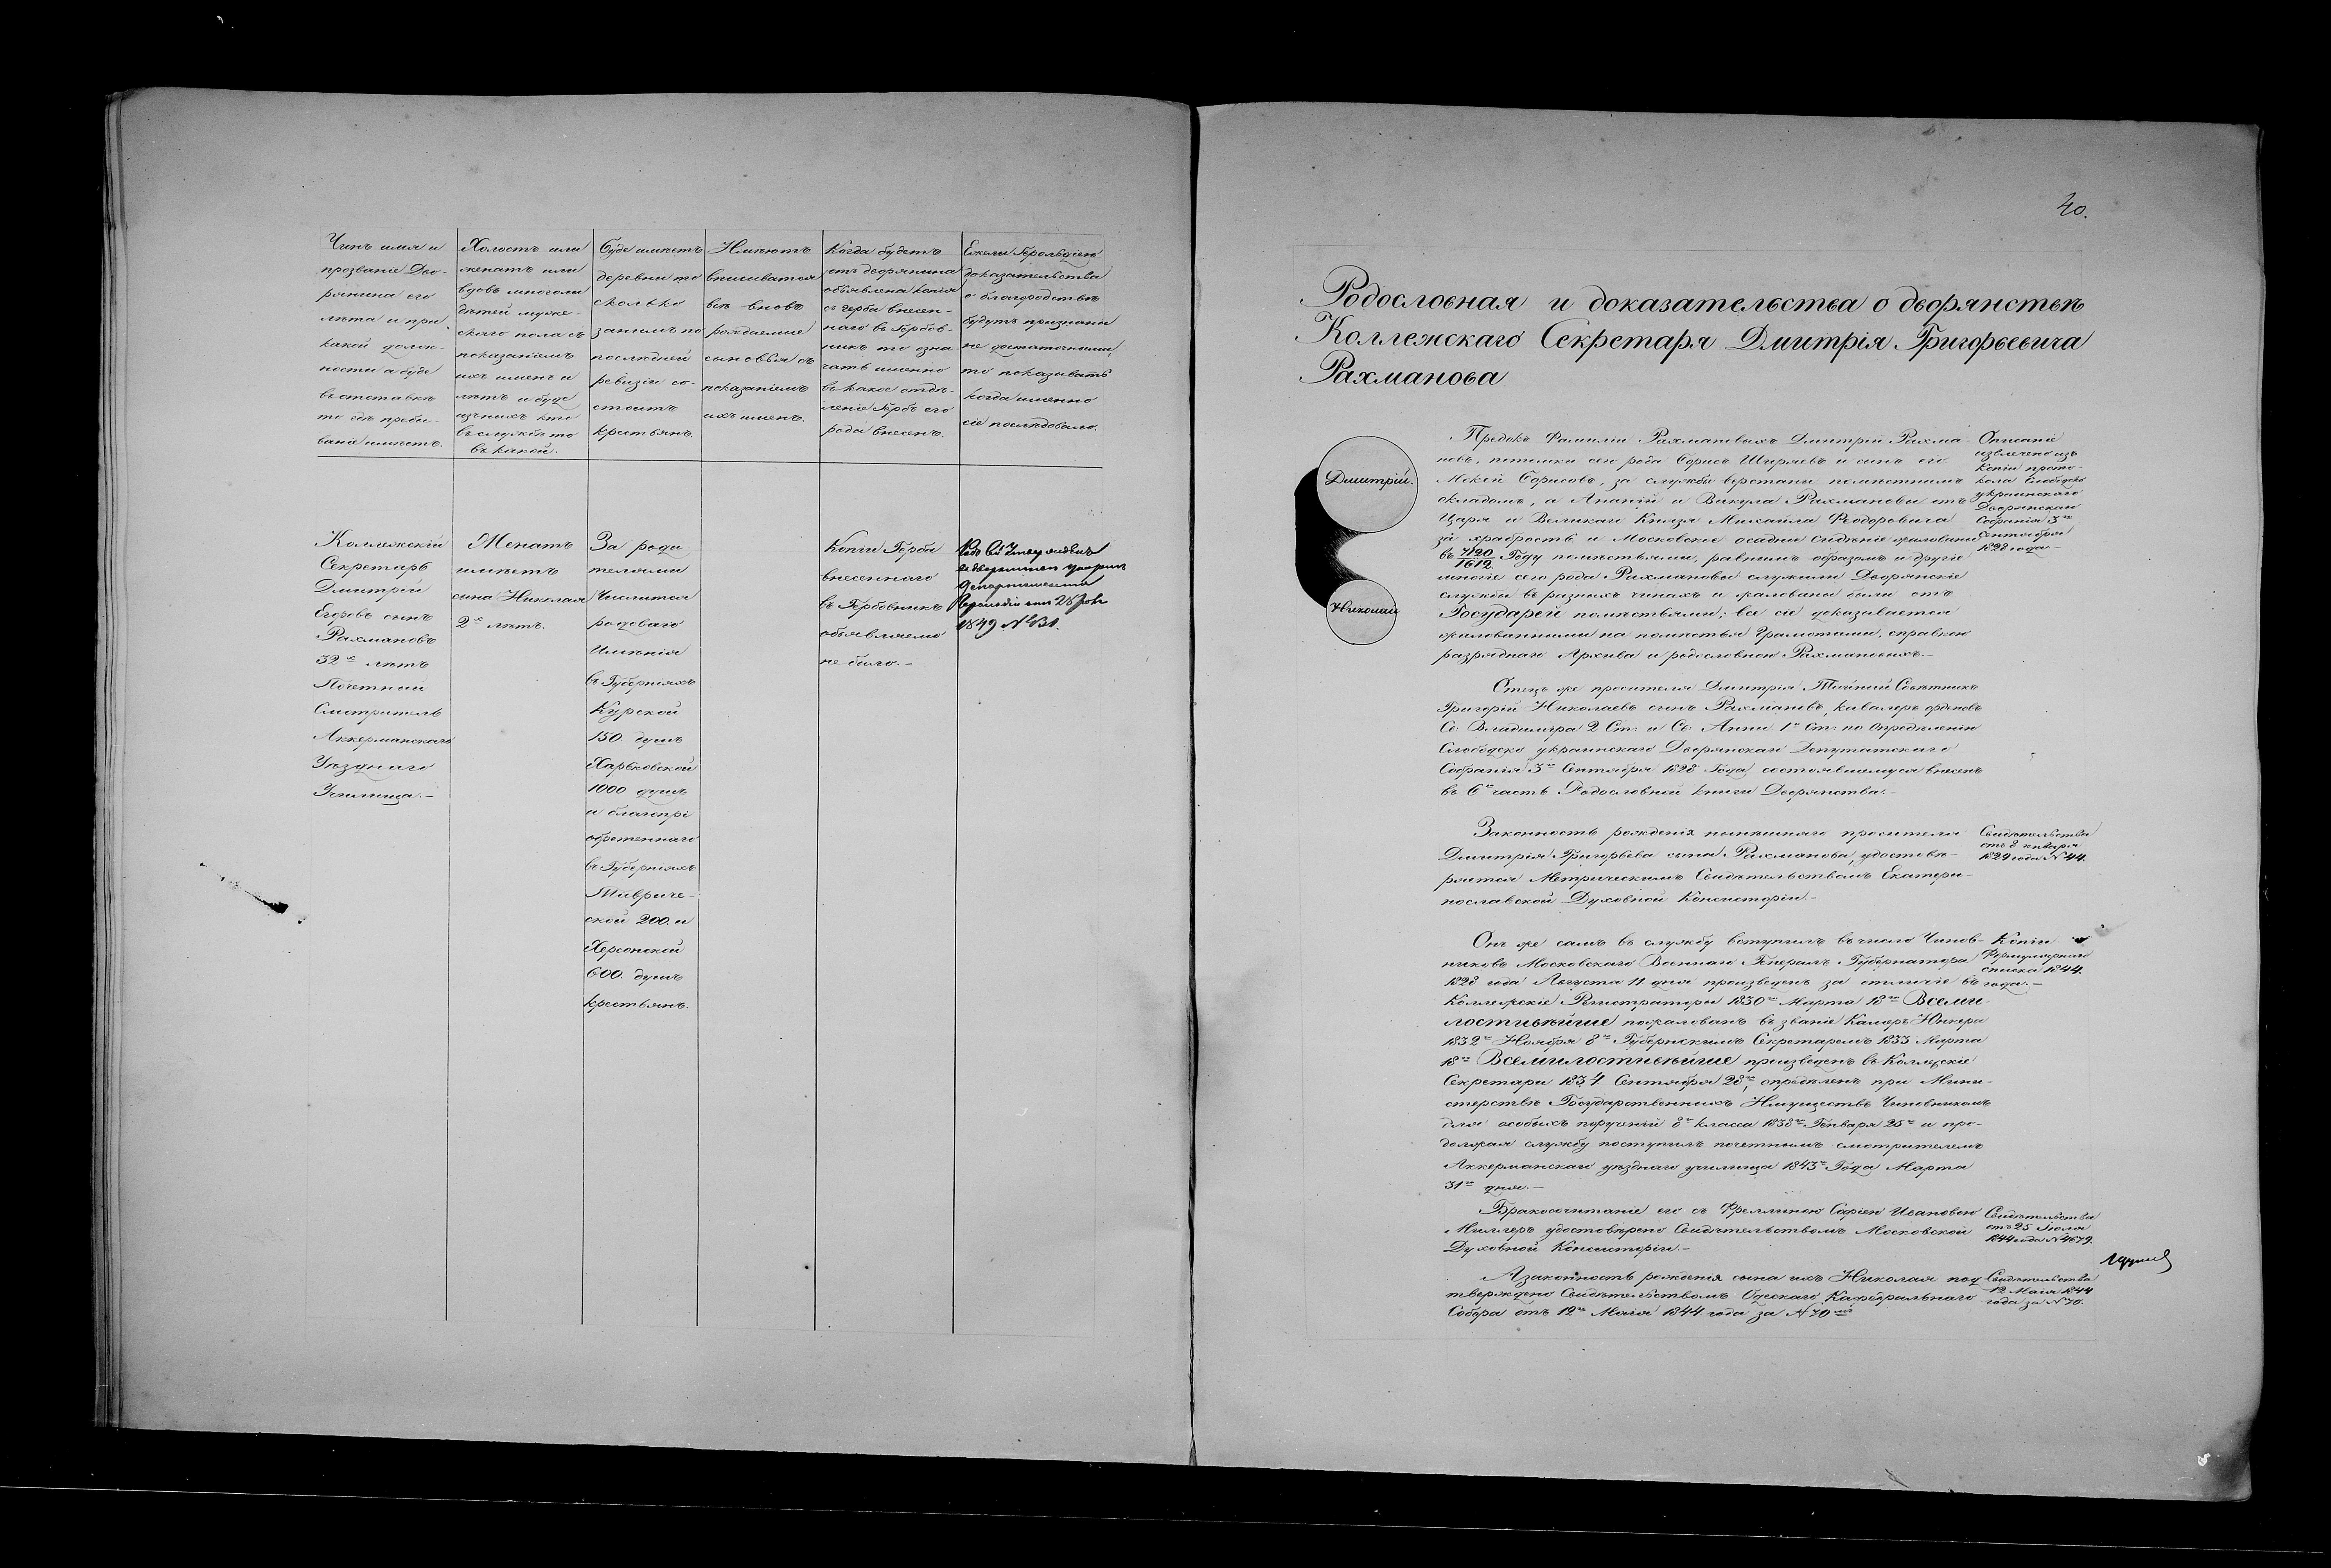 Чинъ имя и
прозваніе Дво-
рянина его
лѣта и при
какой долж-
ности а буде
въ отставкѣ
то гдѣ пребы-
ваніе имѣетъ.
Холостъ или
женатъ или
вдовъ многоли
дѣтей муже-
скаго пола съ
показаніемъ
ихъ именъ и
лѣтъ и буде
изъ нихъ кто
въ службѣ то
въ какой.
Буде имѣетъ
деревни то
сколько
за нимъ по
послѣдней
ревизіи со-
стоитъ
крестьянъ.
Имѣютъ
вписыватся
всѣ вновь
рождаемые
сыновья съ
показаніемъ
ихъ именъ.
Когда будетъ
отъ дворянина
объявлена копія
съ герба внесен-
наго въ Гербов-
никъ то озна-
чать именно
въ какое отдѣ-
леніе Гербъ его
рода внесенъ.
Ежели Герольдіею
доказательства
о благородствѣ
будутъ признаны
не достаточными,
то показывать
когда именно
сіе послѣдовало.
Коллежскій
Секретарь
Дмитрій
Егоровъ сынъ
Рахмановъ
32 лѣтъ
Почетный
Смотритель
Аккерманскаго
Уѣзднаго
Училища.—
Женатъ
имѣетъ
сына Николая
2 лѣтъ.
За роди
телями
Числится
родоваго
Имѣнія
въ Губерніяхъ
Курской
150 душъ
Харьковской
1000 душъ
и благопрі
обретеннаго
въ Губерніяхъ
Тавриче-
ской 200. и
Херсонской
600. душъ
крестьянъ.
Копіи Герба
внесеннаго
въ Гербовникъ
объявляемо
не было.—
Родъ сей
Департамента
Герольдіи
1849 №
40.
Родословная и доказательства о дворянствѣ
Коллежскаго Секретаря Дмитрія Григорьевича
Рахманова
Дмитрій.
Николай
Предокъ Фамиліи Рахмановыхъ Дмитрій Рахма-
новъ, потомки сего рода Борисъ Ширяевъ и сынъ его
Мокей Борисовъ, за службы верстаны помѣстнымъ
окладомъ, а Ананій и Викула Рахмановы отъ
Царя и Великаго Князя Михаила Феодоровича
за храбрость и Московское осадное сидѣніе жалованы
въ 7120/1612 Году помѣстьями, равнымъ образомъ и другіе
многіе сего рода Рахмановы служили Дворянскіе
службы въ разныхъ чинахъ и жалованы были отъ
Государей помѣстьями; все сіе доказывается
жалованными на помѣстья Грамотами, справкою
разряднаго Архива и родословною Рахмановыхъ.—
Описаніе
извлечено изъ
Копіи прото-
кола Слободско
украинскаго
Дворянскаго
Собранія 3го
Сентября
1828 года.—
Отецъ же просителя Дмитрія Тайный Совѣтникъ
Григорій Николаевъ сынъ Рахмановъ, кавалеръ орденовъ
Св. Владиміра 2 Ст. и Св. Анны 1й Ст. по опредѣленію
Слободско украинскаго Дворянскаго Депутатскаго
Собранія 3го Сентября 1828 Года состоявшемуся внесенъ
въ 6ю часть Родословной книги Дворянства.—
Законность рожденія нынѣшняго просителя
Дмитрія Григорьева сына Рахманова, удостовѣ-
ряется Метрическимъ Свидѣтельствомъ Екатери-
нославской Духовной Консисторіи.—
Свидѣтельства
отъ 8 января
1829 года №44.
Онъ же самъ въ службу вступилъ въ число Чинов-
никовъ Московскаго Военнаго Генералъ Губернатора
1828 года Августа 11 дня произведенъ за отличіе въ
Коллежскіе Регистраторы 1830го Марта 18го Всеми-
лостивѣйше пожалованъ въ званіе Камеръ Юнкера
1832го Ноября 8го Губернскимъ Секретаремъ 1833 Марта
18го Всемилостивѣйше произведенъ въ Коллежскіе
Секретари 1834 Сентября 28го, опредѣленъ при Мини-
стерствѣ Государственныхъ Имуществъ Чиновникомъ
для особыхъ порученій 8го класса 1838го Генваря 25го и про-
должая службу поступилъ почетнымъ смотрителемъ
Аккерманскаго уѣзднаго училища 1843го Года Марта
31го дня.—
Копіи
Формулярнаго
списка 1844.
года.—
Бракосочитаніе его съ Фрелиною Софіею Ивановою
Миллеръ удостовѣрено Свидѣтельствомъ Московской
Духовной Консисторіи.—
Свидѣтельства
отъ 25 Іюля
1844 года №4679.
А законность рожденія сына ихъ Николая под
тверждено Свидѣтельствомъ Одескаго Кафедральнаго
Собора отъ 12го Мая 1844 года за №70мъ
Свидѣтельства
12 Маія 1844
года за №70.